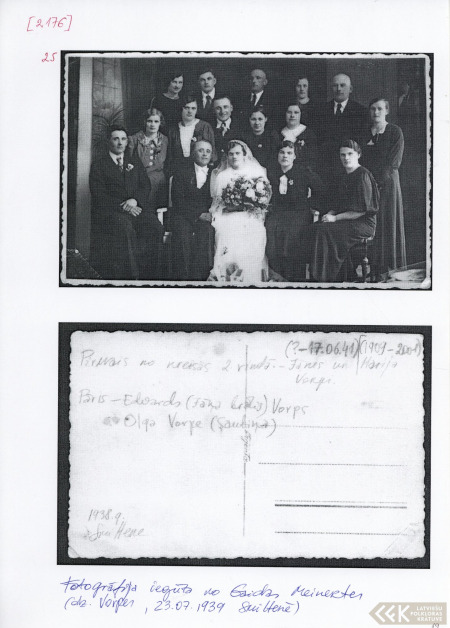 [2176]
25
Pirmais no kreisās 2 rindā - Jānis un Marija
(?-17.06.41) (1909-
Vorpi.
Pāris - Edvards (Jāņa brālis) Vorps
Olga Vorpe (Sauliņa)
1938.g.
Smiltene
Fotogrāfija iegūta no Gaidas Meinertes
(dz. Vorpes, 23.07.1939 Smiltenē)
LATVIEŠU
FOLKLORAS
KRĀTUVE